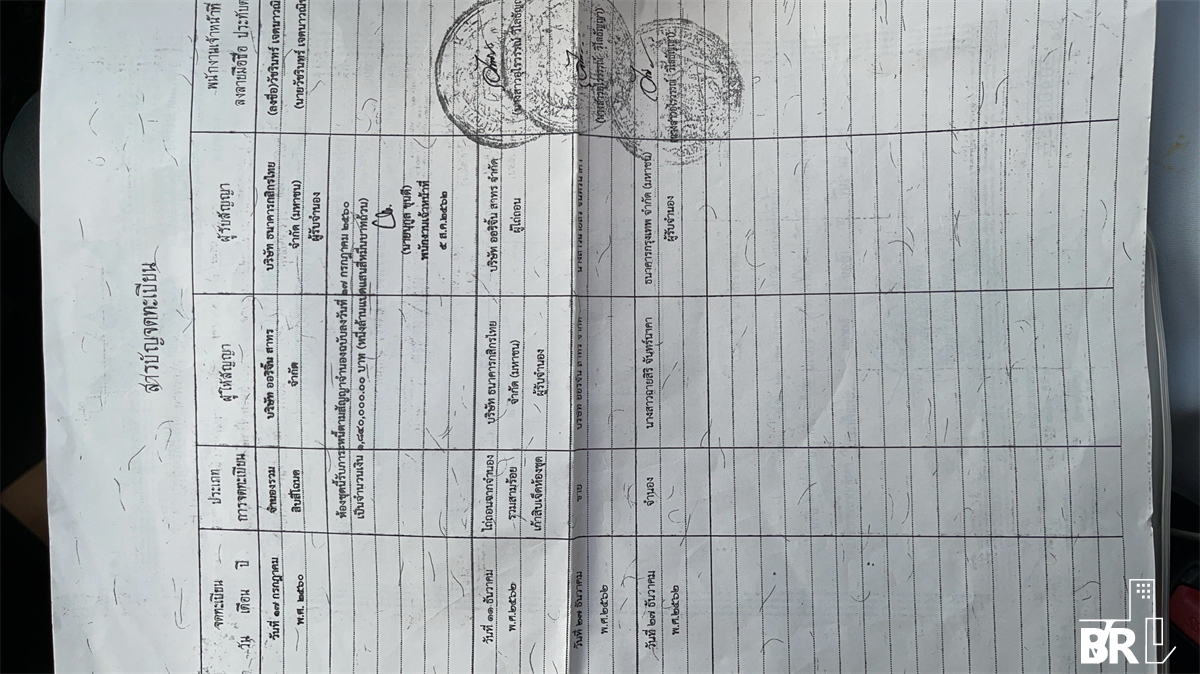 สารบัญจดทะเบียน
จดทะเบียน
วัน เดือน ปี
ประเภท
การจดทะเบียน
ผู้ให้สัญญา
ผู้รับสัญญา
พนักงานเจ้าหน้าที่
ลงลายมือชื่อ ประทับตรา
วันที่ ๑๗ กรกฎาคม
พ.ศ. ๒๕๖๐
จำนองรวม
สิบสี่โฉนด
บริษัท ออริจิ้น สาทร
จำกัด
บริษัท ธนาคารกสิกรไทย
จำกัด (มหาชน)
ผู้รับจำนอง
(ลงชื่อ)วัชรินทร์ เจตนาวณิ
(นายวัชรินทร์ เจตนาวณิ
ห้องชุดนี้รับภาระหนี้ตามสัญญาจำนองฉบับลงวันที่ ๑๗ กรกฎาคม ๒๕๖๐
เป็นจำนวนเงิน ๑,๘๔๐,๐๐๐.๐๐ บาท (หนึ่งล้านแปดแสนสี่หมื่นบาทถ้วน)
(นายนุกูล ขุนดี)
พนักงานเจ้าหน้าที่
๕ ส.ค.๒๕๖๒
วันที่ ๑๑ ธันวาคม
พ.ศ.๒๕๖๒
ไถ่ถอนจากจำนอง
รวมสามร้อย
เก้าสิบเจ็ดห้องชุด
บริษัท ธนาคารกสิกรไทย
จำกัด (มหาชน)
ผู้รับจำนอง
บริษัท ออริจิ้น สาทร จำกัด
ผู้ไถ่ถอน
วันที่ ๒๗ ธันวาคม
พ.ศ.๒๕๖๒
ขาย
บริษัท ออริจิ้น สาทร จำกัด
วันที่ ๒๗ ธันวาคม
พ.ศ.๒๕๖๒
จำนอง
นางสาวฉายสิริ จันทร์นาคา
ธนาคารกรุงเทพ จำกัด (มหาชน)
ผู้รับจำนอง
BR